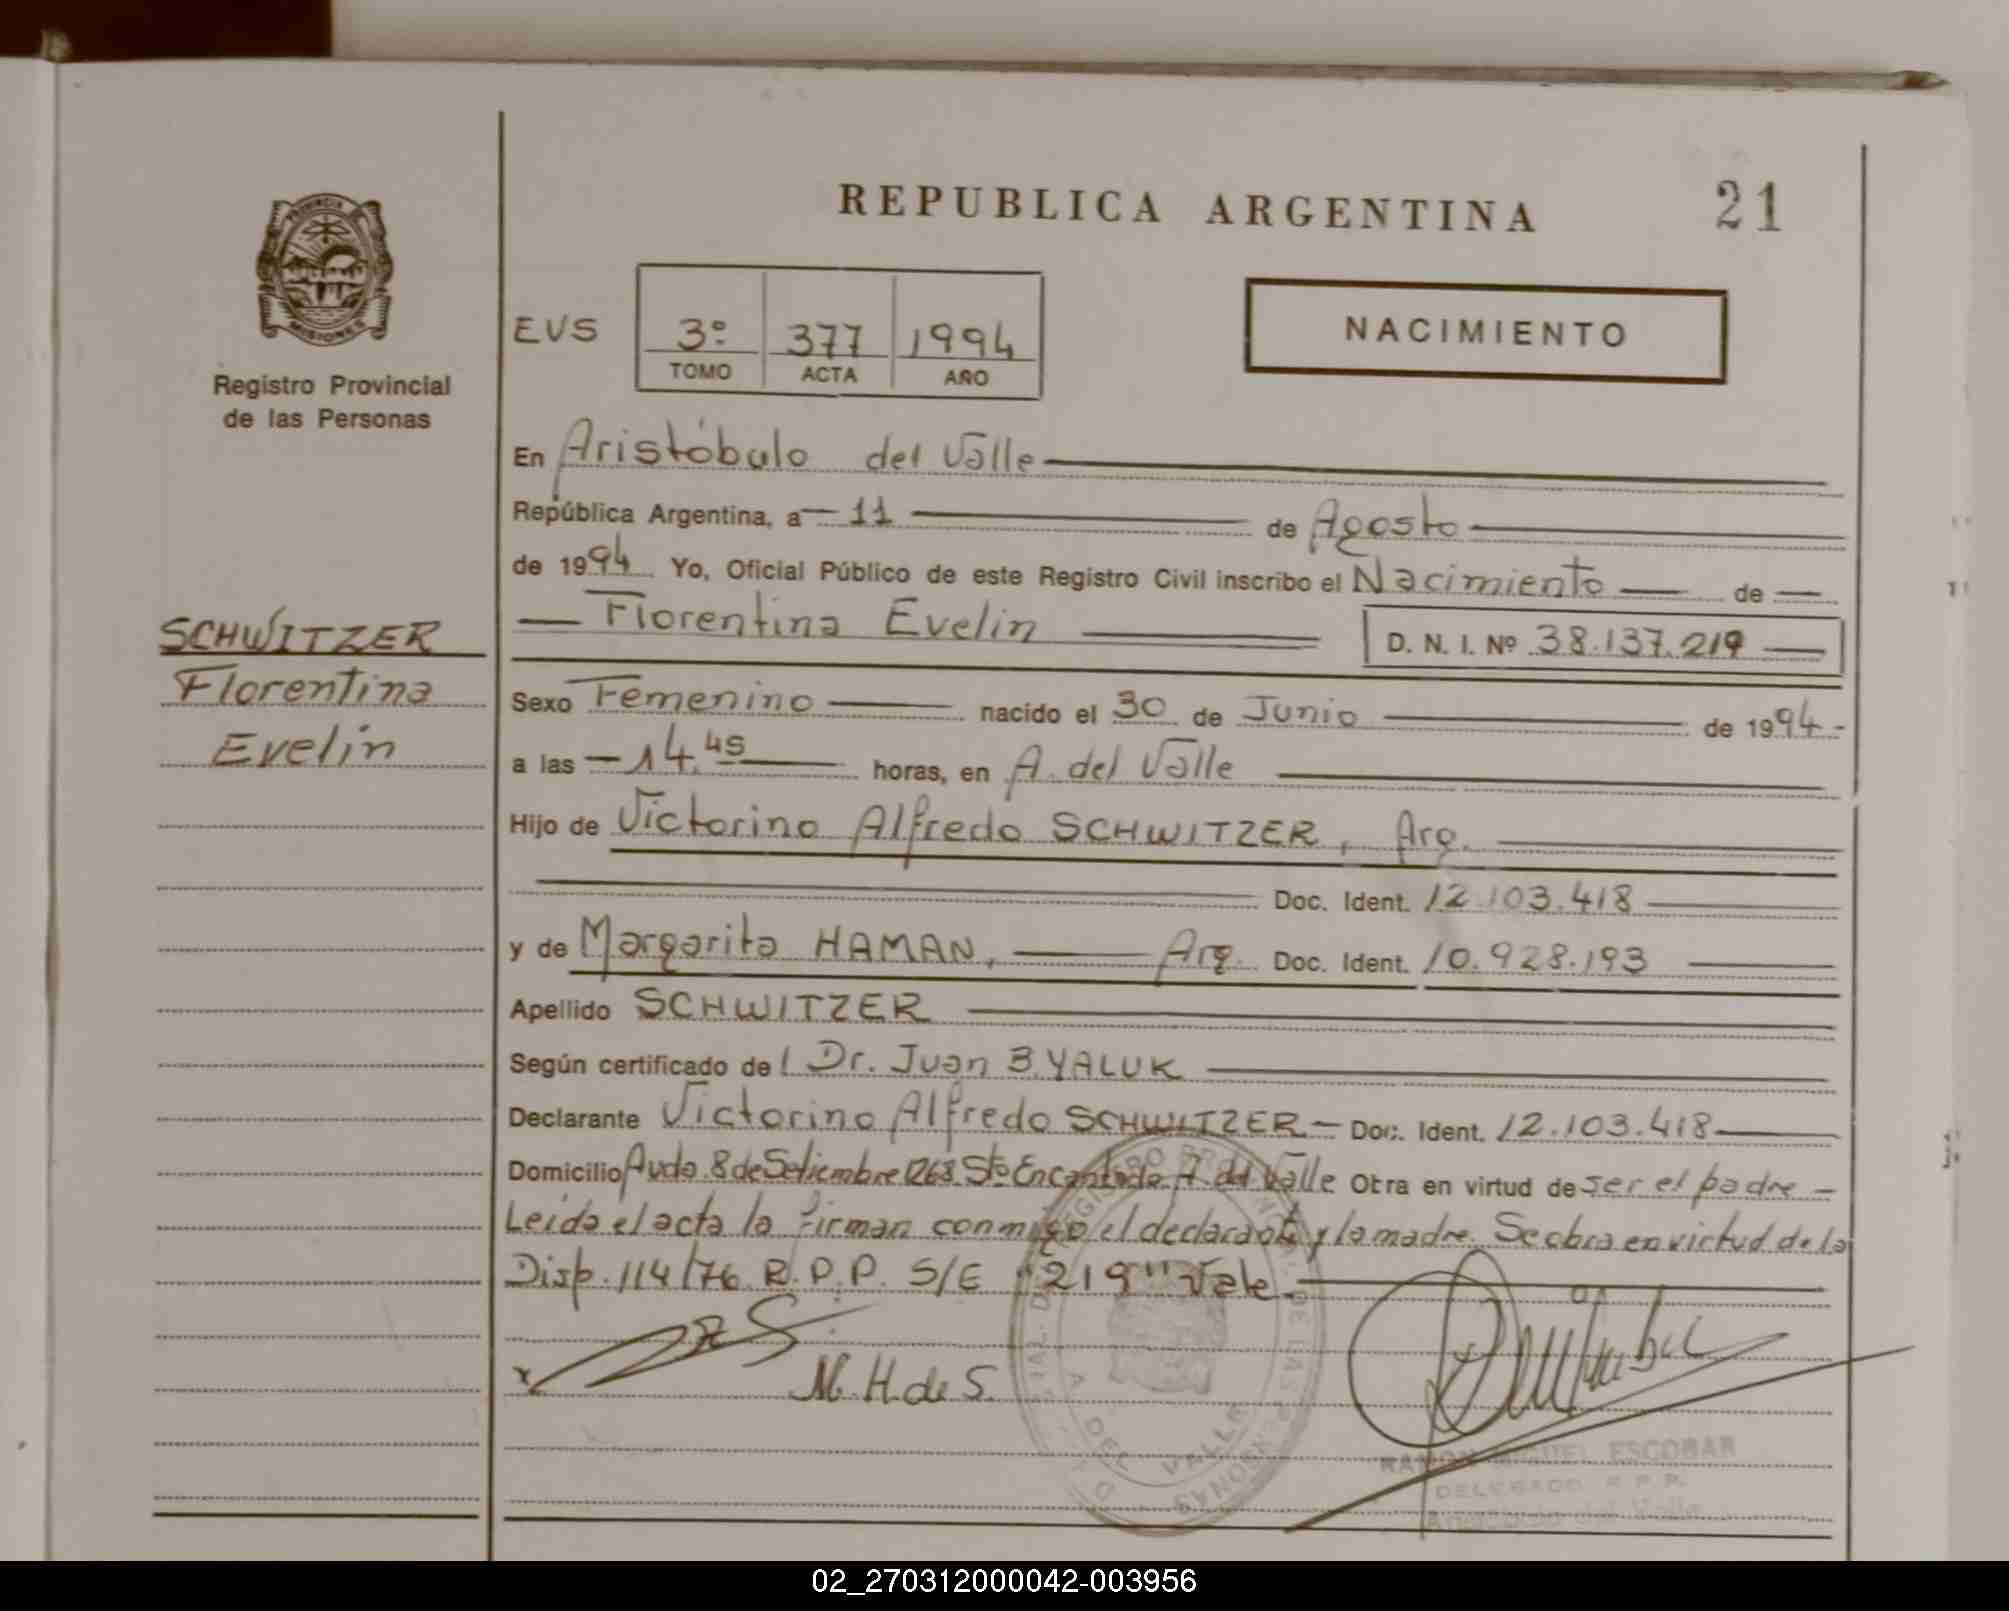 REPUBLICA ARGENTINA
21
PROVINCIA DE
MISIONES
Registro Provincial
de las Personas
EVS
3º 377 1994
TOMO ACTA AÑO
NACIMIENTO
En Aristóbulo del Valle
República Argentina, a 11 de Agosto
de 1994 Yo, Oficial Público de este Registro Civil inscribo el Nacimiento de
Florentina Evelin D. N. I. Nº 38.137.219
SCHWITZER
Florentina
Evelin
Sexo Femenino nacido el 30 de Junio de 1994
a las 14.45 horas, en A. del Valle
Hijo de Victorino Alfredo SCHWITZER, Arg.
Doc. Ident. 12.103.418
y de Margarita HAMAN, Arg. Doc. Ident. 10.928.193
Apellido SCHWITZER
Según certificado del Dr. Juan B. YALUK
Declarante Victorino Alfredo SCHWITZER Doc. Ident. 12.103.418
Domicilio Avda. 8 de Setiembre 1268 Sto Encantado A. del Valle Obra en virtud de ser el padre
Leída el acta la firman conmigo el declarante y la madre. Se obra en virtud de la
Disp. 114/76 R.P.P. S/E "219" Vale.
M. H. de S.
REGISTRO PROVINCIAL DE LAS PERSONAS
A. DEL VALLE
RAMON MIGUEL ESCOBAR
DELEGADO R.P.P.
Aristóbulo del Valle
02_270312000042-003956